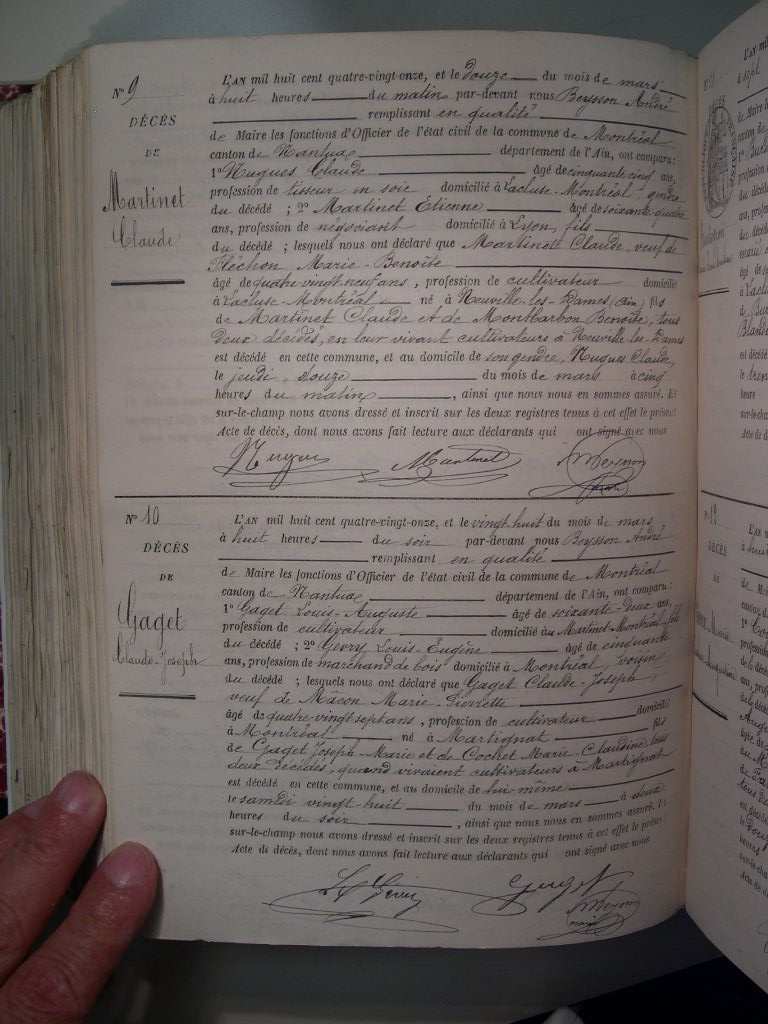 N° 9
DÉCÈS
DE
Martinet
Claude
L'AN mil huit cent quatre-vingt-onze, et le douze du mois de mars
à huit heures du matin par-devant nous Beysson André
remplissant en qualité
de Maire les fonctions d'Officier de l'état civil de la commune de Montréal
canton de Nantua département de l'Ain, ont comparu:
1° Nugues Claude âgé de cinquante cinq ans,
profession de tisseur en soie domicilié à Lacluse-Montréal gendre
du décédé ; 2° Martinet Etienne âgé de soixante quatre
ans, profession de négociant domicilié à Lyon, fils
du décédé ; lesquels nous ont déclaré que Martinet Claude, veuf de
Fléchon Marie-Benoîte
âgé de quatre vingt neuf ans, profession de cultivateur domicilié
à Lacluse-Montréal né à Neuville-les-Dames (Ain) fils
de Martinet Claude et de Montbarbon Benoîte, tous
deux décédés, en leur vivant cultivateurs à Neuville les Dames
est décédé en cette commune, et au domicile de son gendre, Nugues Claude
le jeudi douze du mois de mars à cinq
heures du matin, ainsi que nous nous en sommes assuré. Et
sur-le-champ nous avons dressé et inscrit sur les deux registres tenus à cet effet le présent
Acte de décès, dont nous avons fait lecture aux déclarants qui ont signé avec nous
Martinet
N° 10
DÉCÈS
DE
Gaget
Claude-Joseph
L'AN mil huit cent quatre-vingt-onze, et le vingt huit du mois de mars
à huit heures du soir par-devant nous Beysson André
remplissant en qualité
de Maire les fonctions d'Officier de l'état civil de la commune de Montréal
canton de Nantua département de l'Ain, ont comparu:
1° Gaget Louis-Auguste âgé de soixante-deux ans,
profession de cultivateur domicilié au Martinet-Montréal fils
du décédé ; 2° Gevry Louis-Eugène âgé de cinquante
ans, profession de marchand de bois domicilié à Montréal, voisin
du décédé ; lesquels nous ont déclaré que Gaget Claude-Joseph,
veuf de Mâcon Marie-Pierrette
âgé de quatre-vingt sept ans, profession de cultivateur domicilié
à Montréal né à Martignat fils
de Gaget Joseph-Marie et de Cochet Marie-Claudine tous
deux décédés, quand vivaient cultivateurs à Martignat
est décédé en cette commune, et au domicile de lui-même
le samedi vingt-huit du mois de mars à deux
heures du soir, ainsi que nous nous en sommes assuré. Et
sur-le-champ nous avons dressé et inscrit sur les deux registres tenus à cet effet le présent
Acte de décès, dont nous avons fait lecture aux déclarants qui ont signé avec nous
Gaget